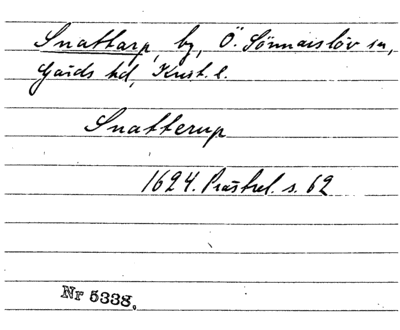 Snattarp, by, Ö. Sönnarslöv sn,
Gärds hd, Krist. l.
Snatterup
1624. Prästrel. s. 62
Nr 5338.